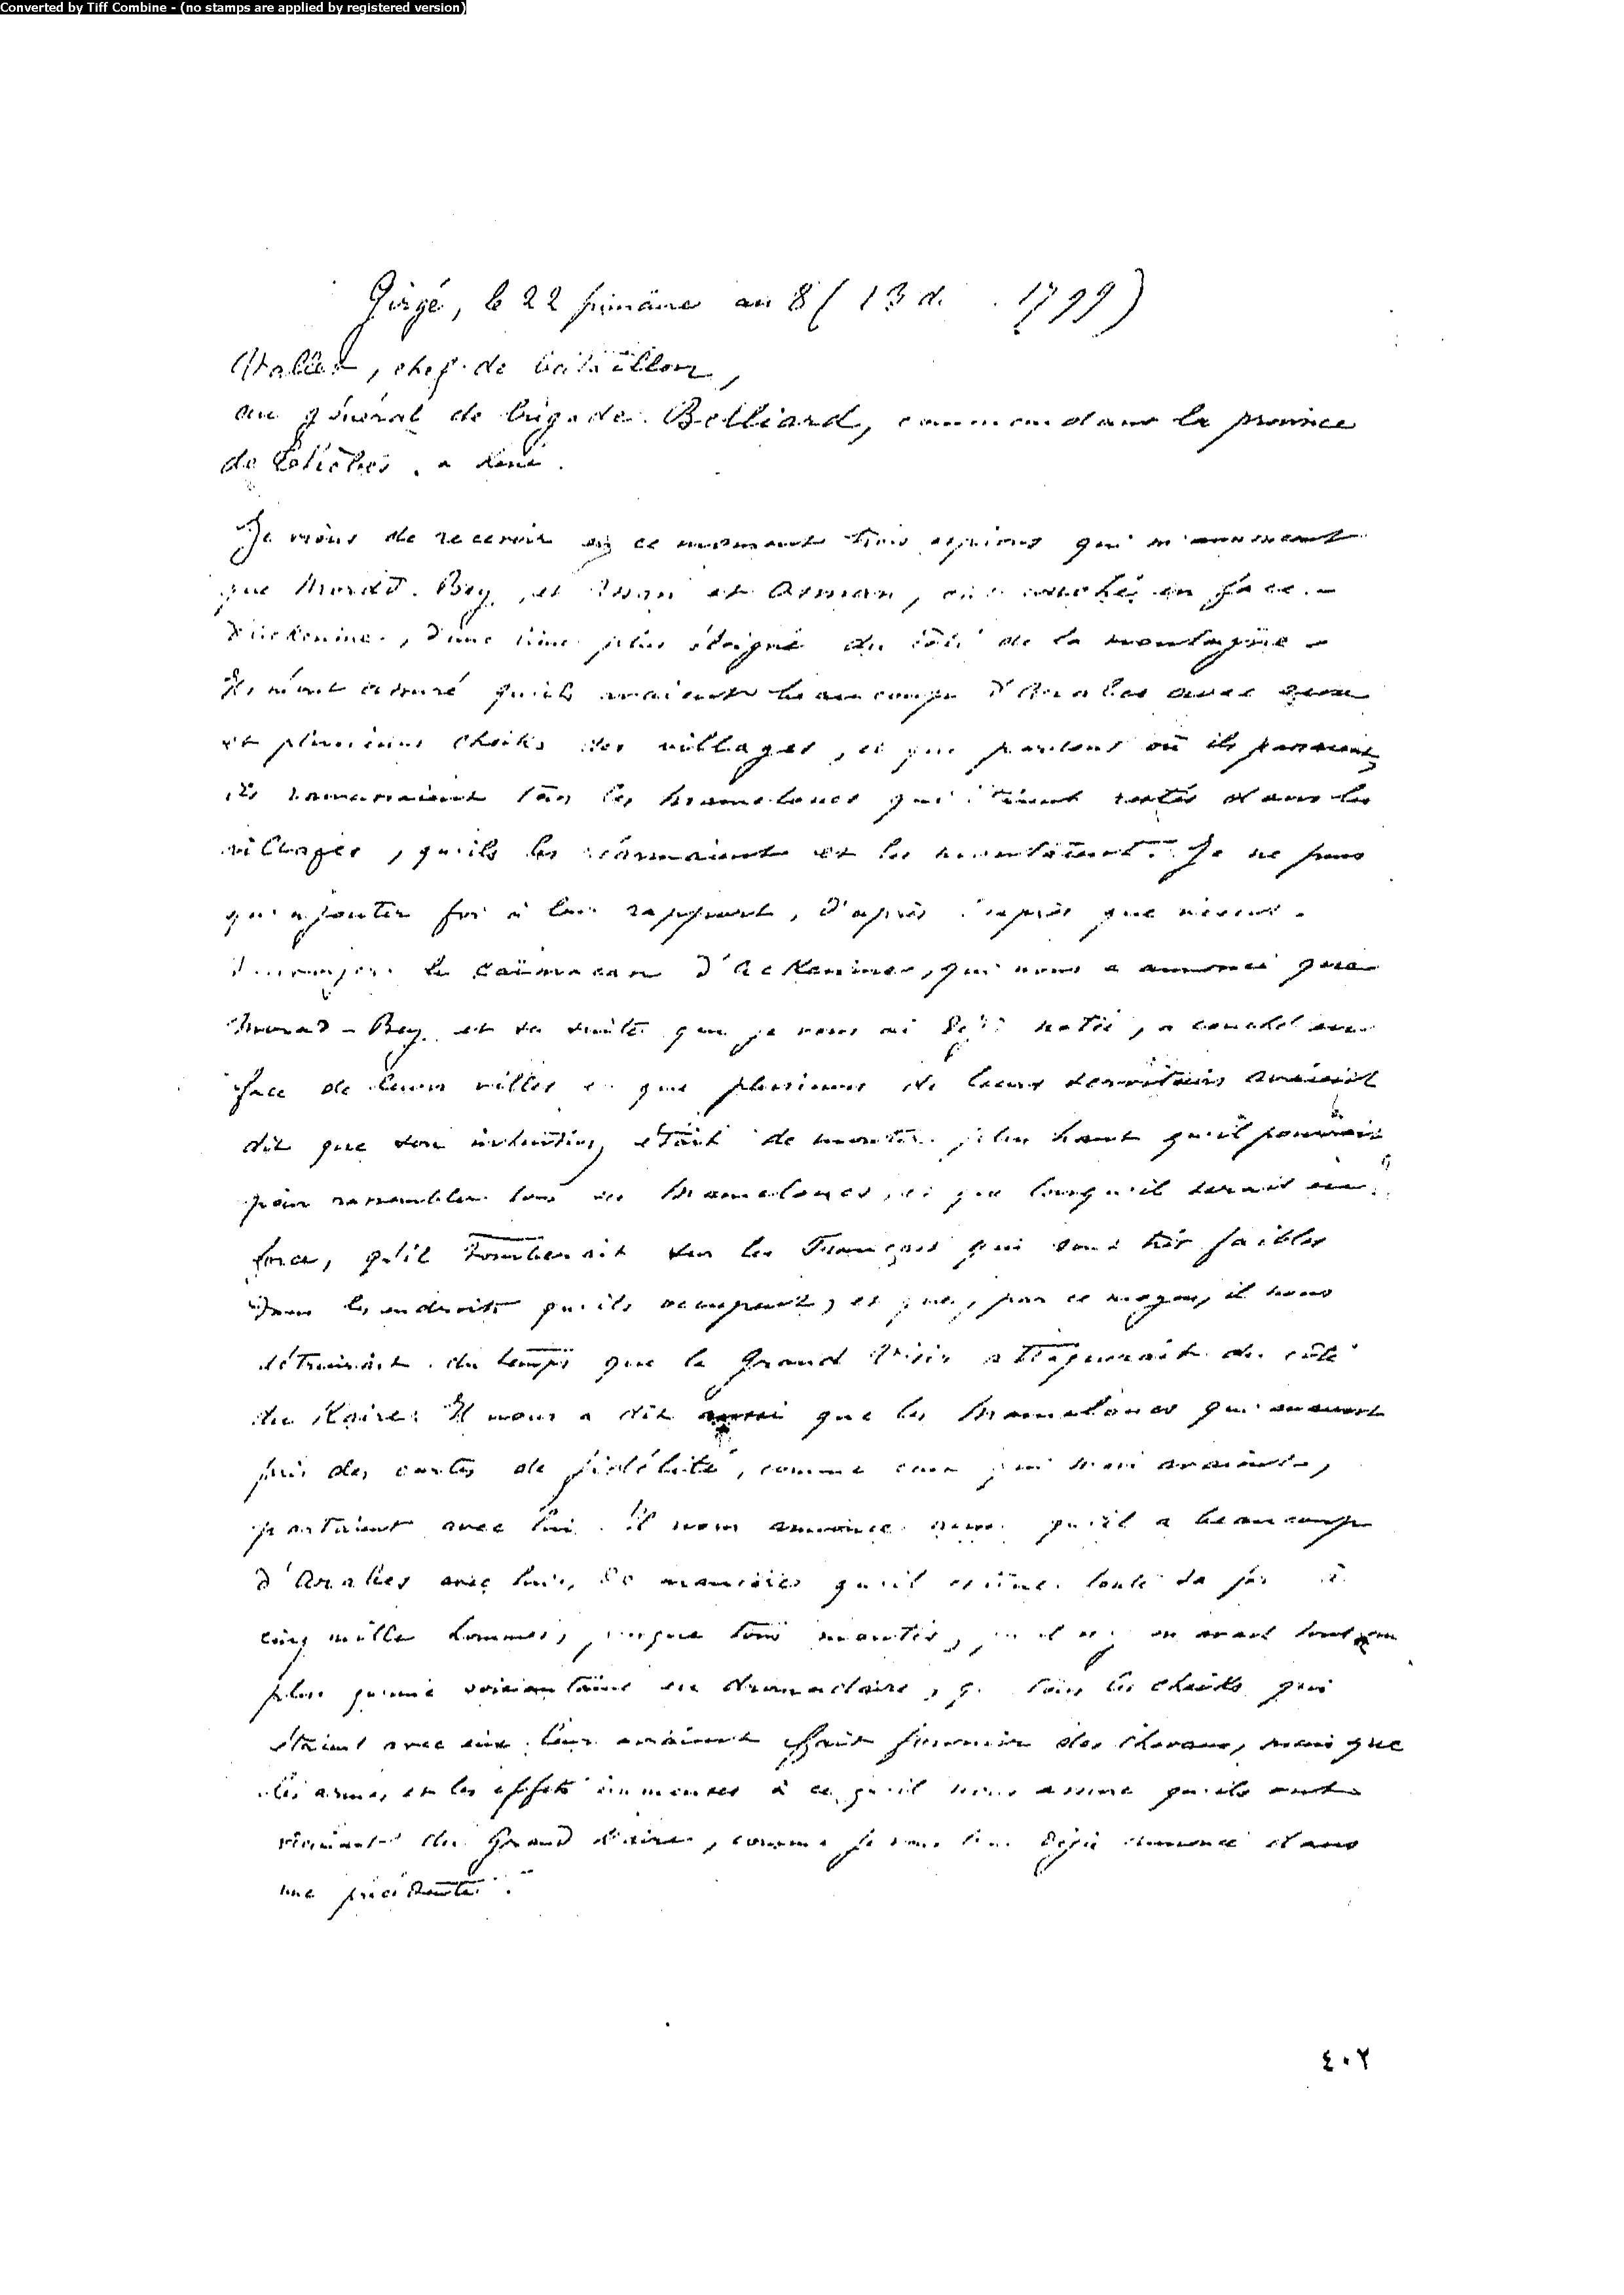 Converted by Tiff Combine - (no stamps are applied by registered version)
Girgé, le 22 frimaire an 8 ( 13 d. . 1799)
chef de bataillon,
au général de brigade Belliard, commandant la province
de
Je viens de recevoir en ce moment trois espions qui m'annoncent
que Morad-Bey, et et Osman, ont couché en face
d'une plus éloigné du côté de la montagne
Ils m'ont assuré qu'ils avaient beaucoup d'Arabes avec eux
et plusieurs cheiks des villages, et que partout où ils passaient
ils ramassaient tous les Mamelouks qui étaient restés dans les
villages, qu'ils les réarmaient et les montaient. Je ne puis
qu'ajouter foi à leur rapport, d'après que
le caïmacan d'Ackmine, qui nous a annoncé que
Morad-Bey et sa suite que je vous ai déjà , a couché en
face de leurs villes et que plusieurs de leurs avaient
dit que son intention était de monter plus haut qu'il pourrait
pour rassembler tous ses Mamelouks, et que lorsqu'il serait en
force, qu'il tomberait sur les Français qui sont très faibles
dans les endroits qu'ils occupent, et que, par ce moyen, il nous
détruirait du temps que le Grand Visir attaquerait du côté
du Kaire. Il nous a dit aussi que les Mamelouks qui avaient
pris des cartes de fidélité, comme ceux qui n'en avaient,
partaient avec lui. Il nous annonce aussi qu'il a beaucoup
d'Arabes avec lui, de manière qu'il estime toute sa à
cinq mille hommes, presque tous montés, qu'il n'y en avait tout au
plus qu'une soixantaine en dromadaire, que tous les cheiks qui
étaient avec eux leur avaient fait fournir des chevaux, mais que
les armes et les effets immenses à ce qu'il nous assure qu'ils ont
venaient du Grand Kaire, comme je vous l'ai déjà annoncé dans
une précédente.
٤٠٢